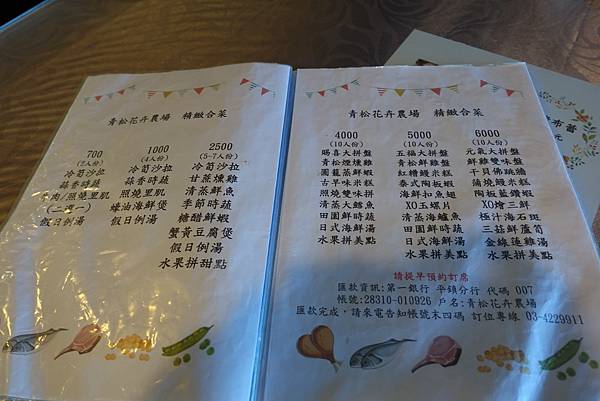 青松花卉農場 精緻合菜
700 1000 2500
(2人份) (4人份) (5-7人份)
冷筍沙拉 冷筍沙拉 冷筍沙拉
蒜香時蔬 蒜香時蔬 甘蔗燻雞
牛肉/照燒里肌 照燒里肌 清蒸鮮魚
(二選一) 蠔油海鮮煲 季節時蔬
假日例湯 假日例湯 糖醋鮮蝦
蟹黃豆腐煲
假日例湯
水果拼甜點
青松花卉農場 精緻合菜
4000 5000 6000
(10人份) (10人份) (10人份)
賜喜大拼盤 五福大拼盤 元氣大拼盤
青松煙燻雞 青松鮮雞盤 鮮雞雙味盤
團龍蒸鮮蝦 紅糟鰻米糕 干貝佛跳牆
古早味米糕 泰式陶板蝦 蒲燒鰻米糕
照燒雙味拼 海鮮扣魚翅 陶板藍鑽蝦
清蒸大鱈魚 XO玉螺片 XO燴三鮮
田園鮮時蔬 清蒸海鱸魚 極汁海石斑
日式海鮮湯 田園鮮時蔬 三菇鮮蘆筍
水果拼美點 日式海鮮湯 金線蓮雞湯
水果拼美點 水果拼美點
請提早預約訂席
匯款資訊:第一銀行 平鎮分行 代碼 007
帳號:28310-010926 戶名:青松花卉農場
匯款完成,請來電告知帳號末四碼 訂位專線 03-4229911